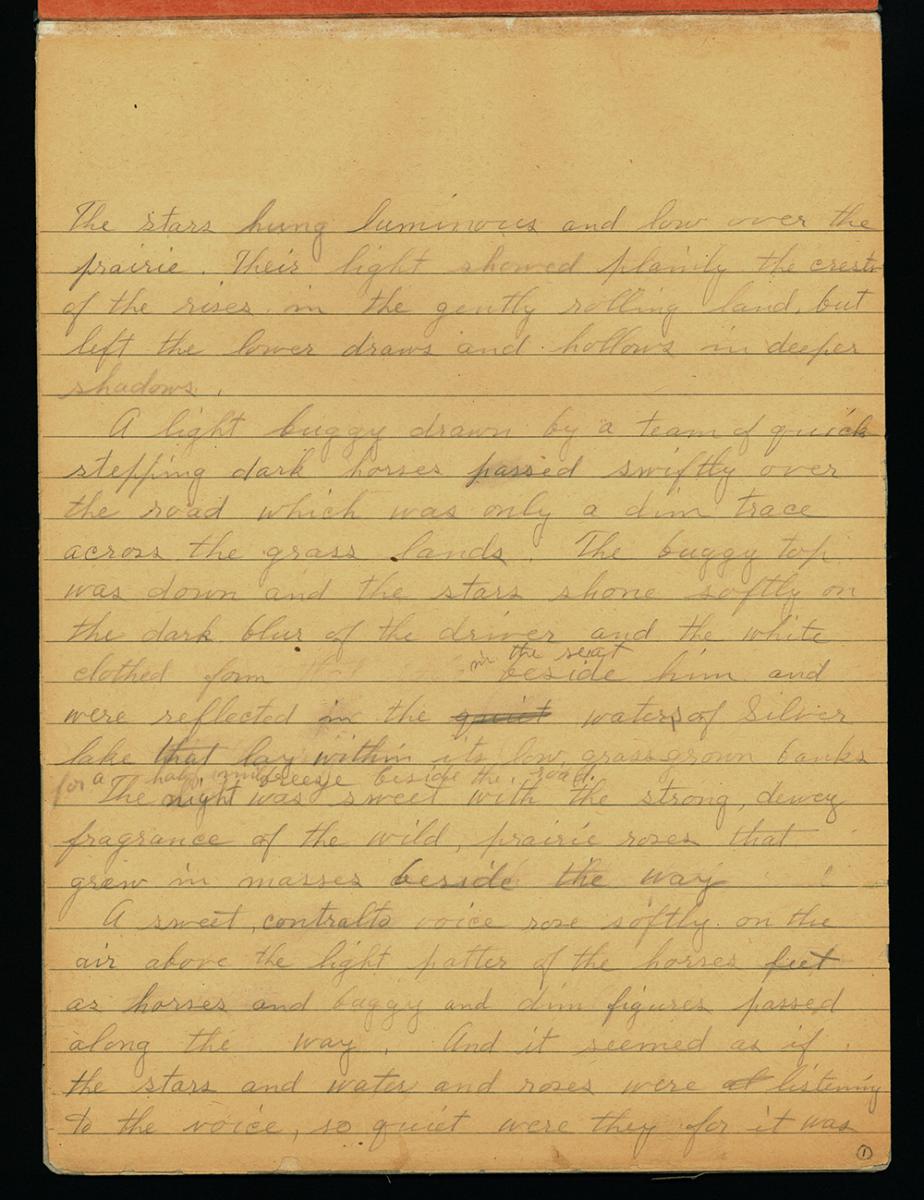 The stars hung luminous and low over the
prairie. Their light showed plainly the crests
of the rises in the gently rolling land, but
left the lower draws and hollows in deeper
shadows.
A light buggy drawn by a team of quick
stepping dark horses passed swiftly over
the road which was only a dim trace
across the grass lands. The buggy top
was down and the stars shone softly on
the dark blur of the driver and the white
in the seat
clothed form beside him and
were reflected in the quiet waters of Silver
lake that lay within its low grass grown banks
for a half mile beside the road.
breeze
The night was sweet with the strong, dewey
fragrance of the wild, prairie roses that
grew in masses beside the way
A sweet, contralto voice rose softly on the
air above the light patter of the horses feet
as horses and buggy and dim figures passed
along the way. And it seemed as if
the stars and water and roses were listening
to the voice, so quiet were they for it was
1